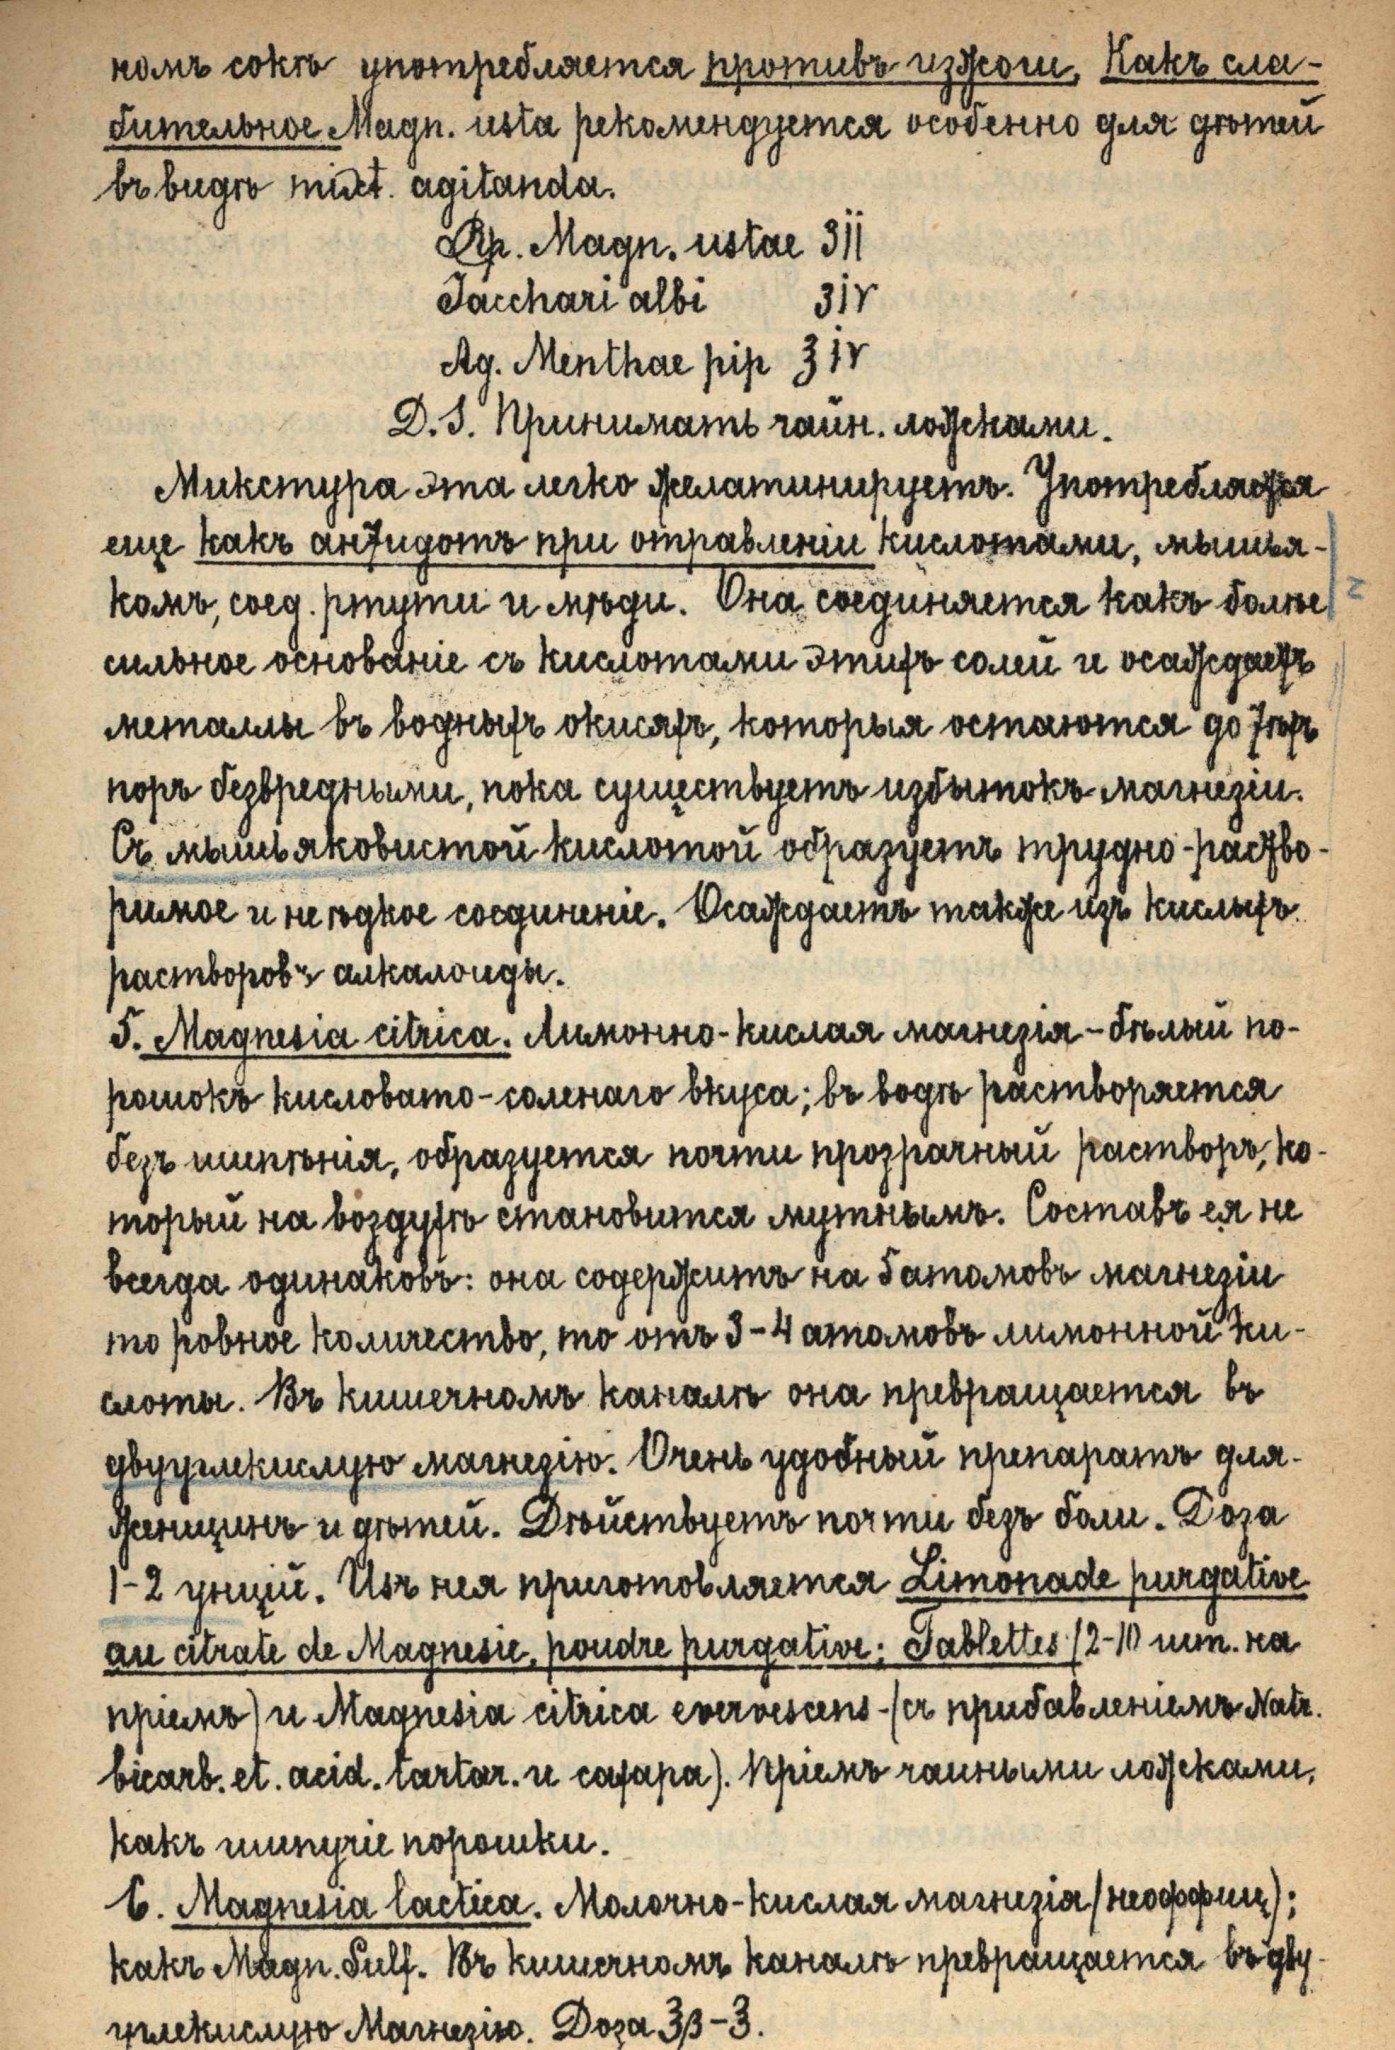 номъ сокѣ употребляется противъ изжоги. Какъ сла-
бительное Magn. usta рекомендуется особенно для дѣтей
въ видѣ mixt. agitanda.
Rp. Magn. ustae ʒii
Sacchari albi ʒiv
Aq. Menthae pip ℥iv
D.S. Принимать чайн. ложками.
Микстура эта легко желатинируетъ. Употребляется
еще какъ антидотъ при отравленіи кислотами, мышья-
комъ, соед. ртути и мѣди. Она соединяется какъ болѣе
сильное основаніе съ кислотами этихъ солей и осаждаетъ
металлы въ водныхъ окисяхъ, которыя остаются до тѣхъ
поръ безвредными, пока существуетъ избытокъ магнезіи.
Съ мышьяковистой кислотой образуетъ трудно-раство-
римое и неѣдкое соединеніе. Осаждаетъ также изъ кислыхъ
растворовъ алкалоиды.
5. Magnesia citrica. Лимонно-кислая магнезія - бѣлый по-
рошокъ кисловато-соленаго вкуса; въ водѣ растворяется
безъ шипѣнія, образуется почти прозрачный растворъ, ко-
торый на воздухѣ становится мутнымъ. Составъ ея не
всегда одинаковъ: она содержитъ на 6 атомовъ магнезіи
то ровное количество, то отъ 3-4 атомовъ лимонной ки-
слоты. Въ кишечномъ каналѣ она превращается въ
двууглекислую магнезію. Очень удобный препаратъ для-
женщинъ и дѣтей. Дѣйствуетъ почти безъ боли. Доза
1-2 унцій. Изъ нея приготовляется Limonade purgative
au citrate de Magnesie, poudre purgative; Tablettes (2-10 шт. на
пріемъ) и Magnesia citrica evervescens - (съ прибавленіемъ Natr.
bicarb. et. acid. tartar. и сахара). Пріемъ чаиными ложками,
какъ шипучіе порошки.
6. Magnesia lactica. Молочно-кислая магнезія (неоффиц);
какъ Magn. Sulf. Въ кишечномъ каналѣ превращается въ дву-
углекислую Магнезію. Доза ℥β-℥.